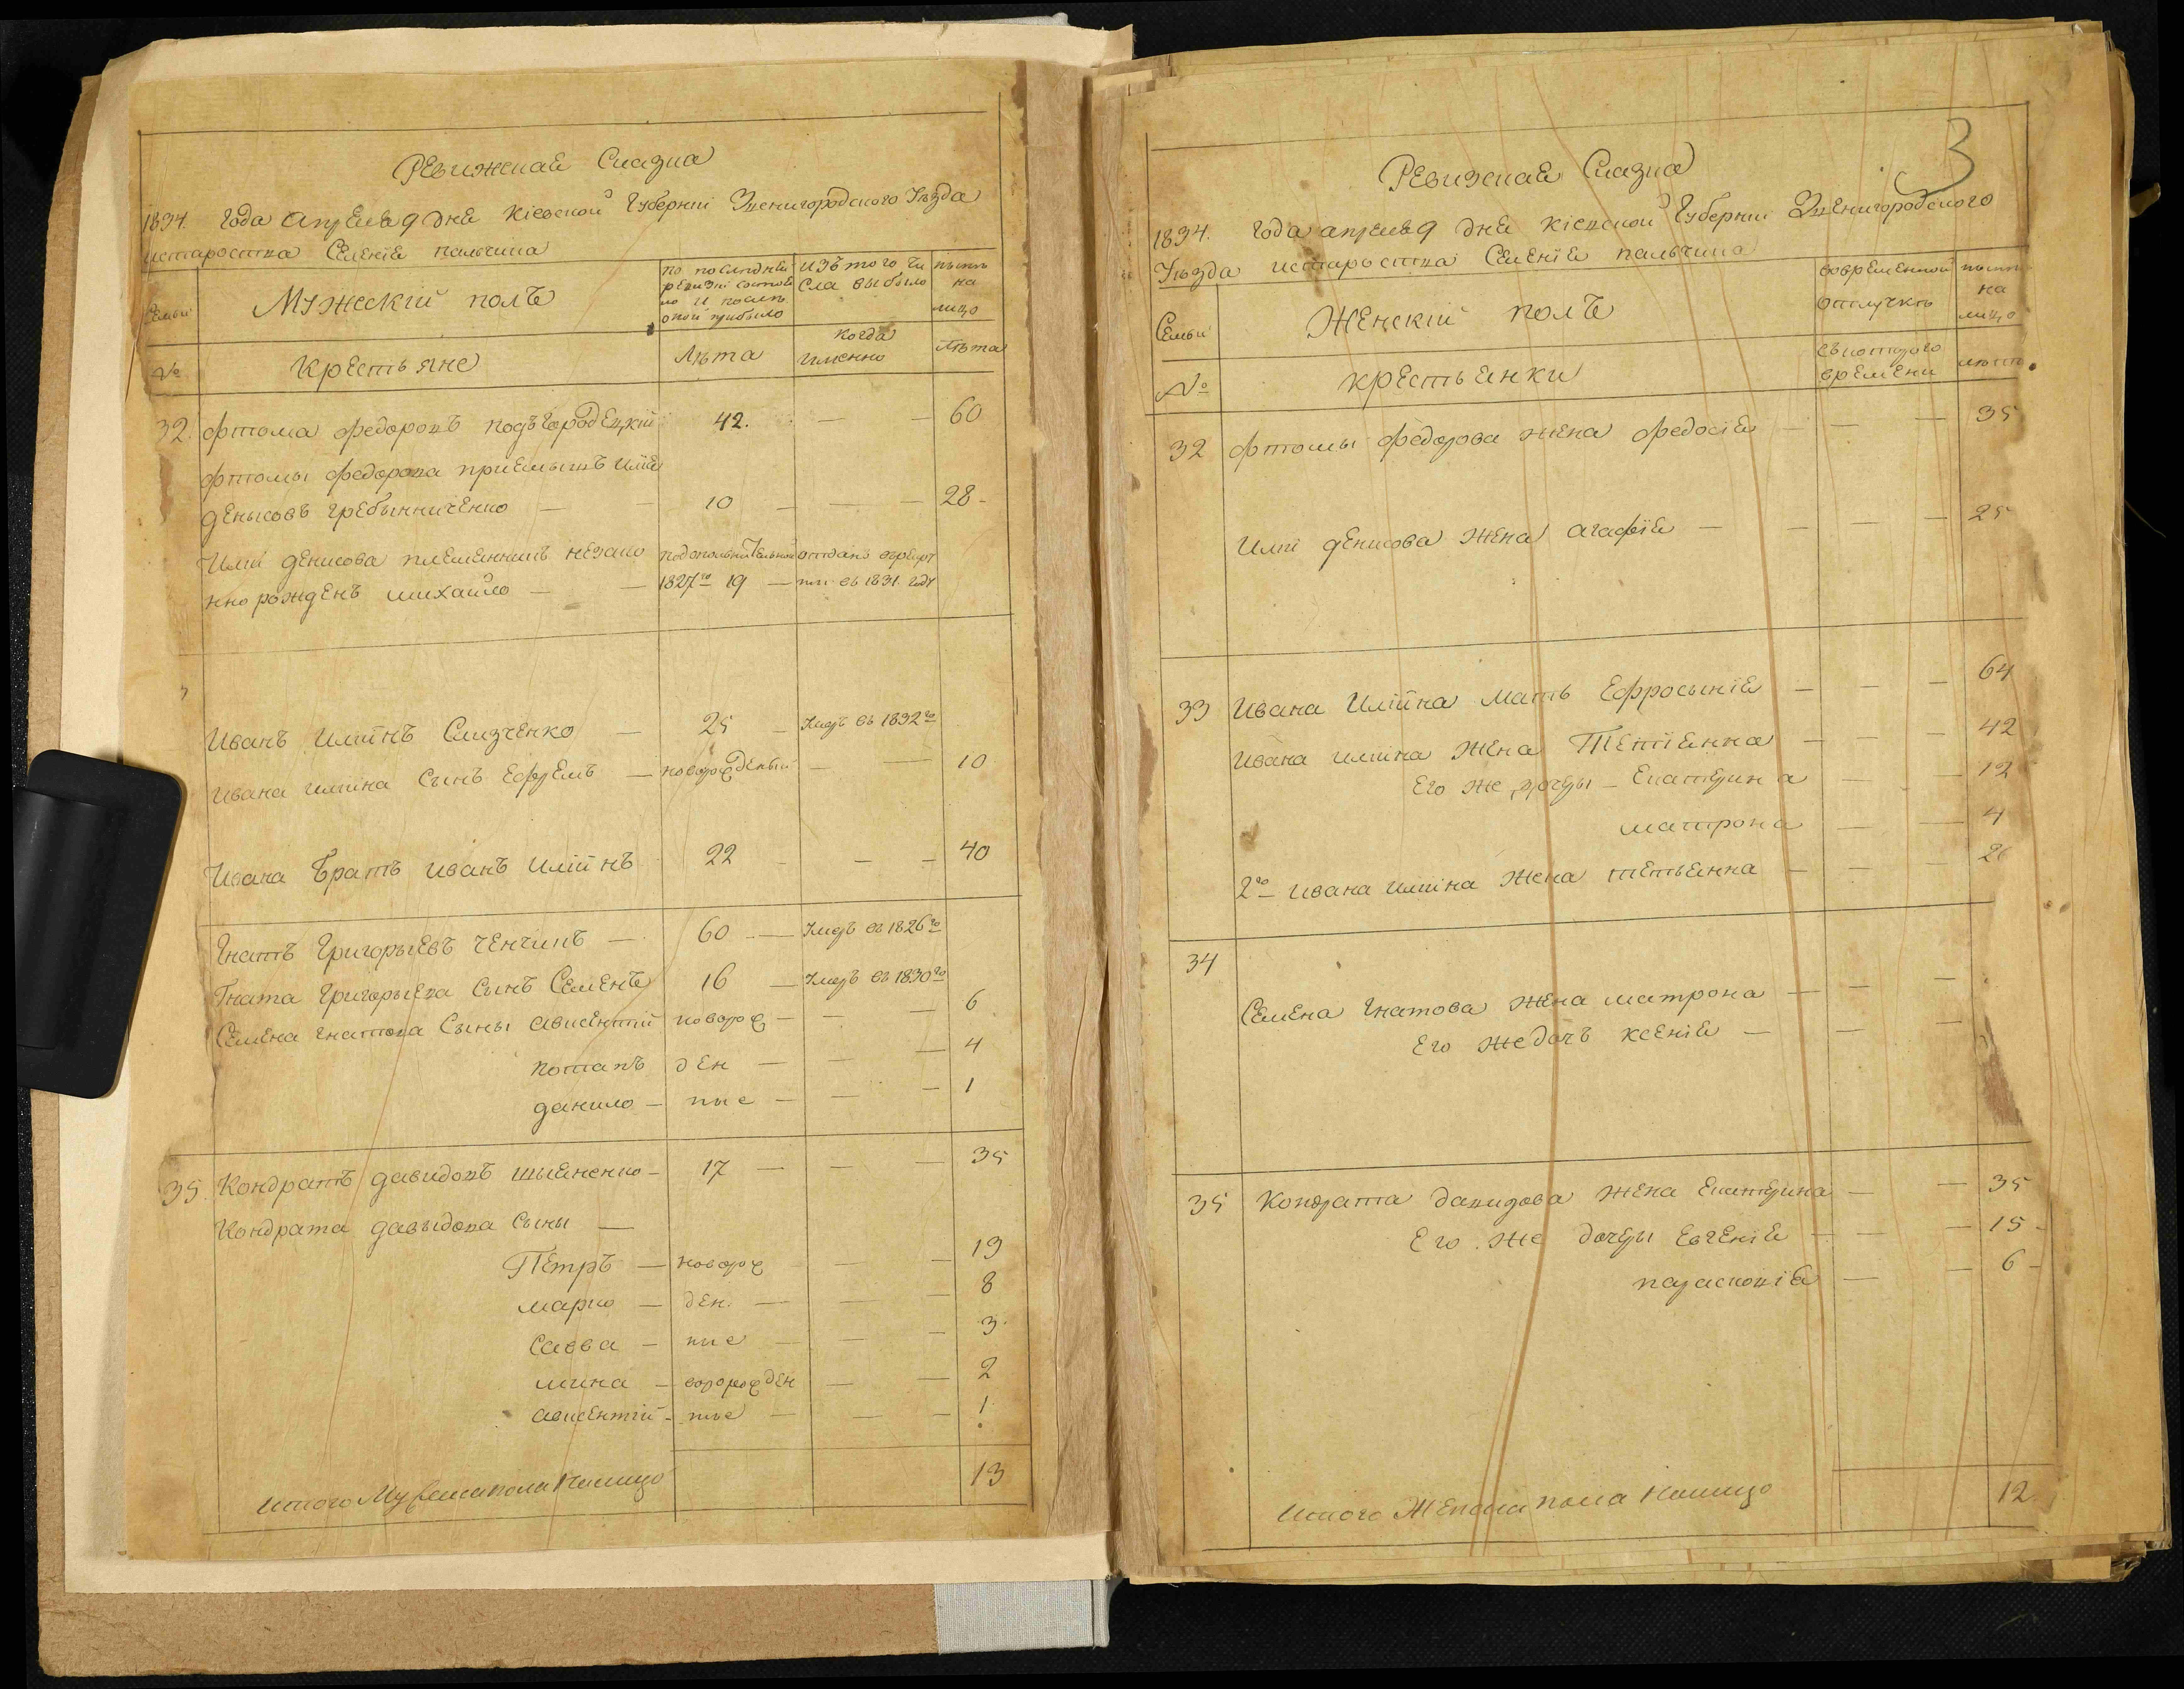 Ревижская Сказка
1834. Года апреля 9 дня Кіевской Губерніи Звенигородского Уѣзда
истароства Селенія пальчика
Семьи
Мужескій полъ
по послѣдней ревизіи состояло и послѣ оной прибыло
изъ того числа выбыло
нынѣ на лицо
№
Крестьяне
Лѣта
когда именно
Лѣта
32. Фтома Федоровъ подъгородецкій 42. — — 60
Фтомы Федорова приемышъ Илія
денысовъ гребынниченко — — 10 — — — 28 -
Иліи денисова племенникъ незако подополнительной отданъ врекрут
нно рожденъ михайло — — 1827го 19 — ты въ 1831 году
Иванъ Иліинъ Слизченко — 25 — Умеръ въ 1832го
Ивана иліина Сынъ Ефремъ — новорожденый — — 10
Ивана братъ иванъ иліинъ 22 — — — 40
Гнатъ Григорьевъ ченчикъ — 60 — Умеръ въ 1826го
Гната Григорьева Сынъ Семенъ 16 — Умеръ въ 1830го
Семена гнатова Сыны авксентій новорож — — — 6
потапъ ден — — — 4
данило — ные — — — 1
35. Кондратъ давидовъ — 17 — — — 35
Кондрата давыдова Сыны —
Петръ — новорож — — 19
марко — ден. — — — 8
Савва — ные — — — 3
мина — воророжден — — 2
авксентій — ные — — — 1
итого Мужеска пола налицо 13
3
Ревижская Сказка
1834. Года апреля 9 дня Кіевской Губерніи Звенигородского
Уѣзда истароства Селенія пальчика
Семьи
Женскій полъ
вовременной отлучкѣ
нынѣ на лицо
№
крестьянки
съкоторого времени
лѣта
32 Фтомы Федорова жена Федосія — — — 35
Иліи денисова жена агафія — — — — 25
33 Ивана Иліина мать Ефросынія — — — 64
Ивана иліина жена Тетіянна — — — 42
Его же дочеры — Екатерина — — 12
матрона — — 4
2го Ивана иліина жена тетьянна — — —
34
Семена гнатова жена матрона — — —
Его же дочъ ксенія — — —
35 Кондрата давидова жена Екатерина — — 35
Его же дочеры Евгенія — — — 15 -
параскокія — — 6 -
итого Женска пола налицо 12